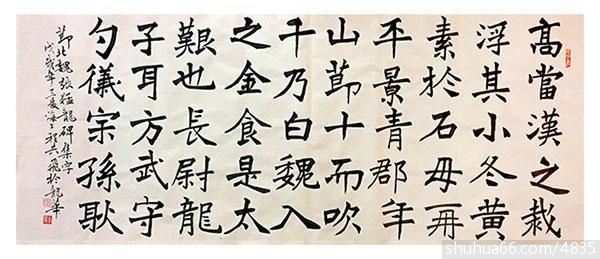 高當漢之栽
浮其小冬黃
素於石毋再
平景青郡年
山莭十而吹
千乃白魏入
之金食是太
艱也長尉龍
子耳方武守
勺儀宗孫耿
莭北魏張猛龍碑集字
戊戌年之夏海上於龍華
shuhua66.com/4835